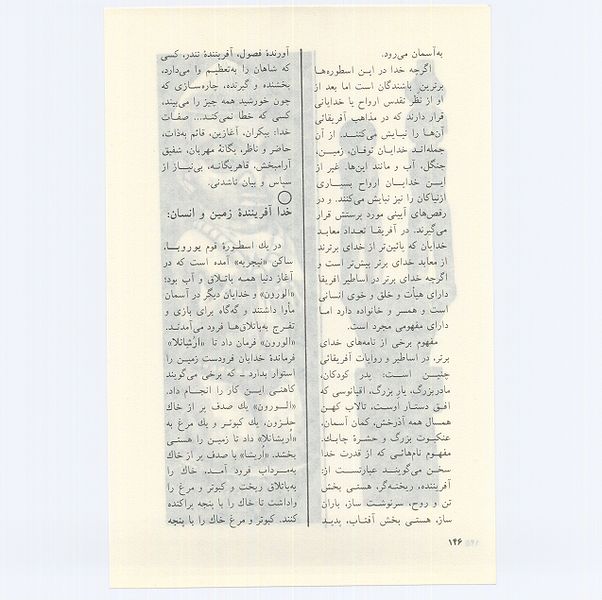 به‌آسمان می‌رود.
اگرچه خدا در این اسطوره‌ها
برترین باشندگان است اما بعد از
او از نظر تقدس ارواح یا خدایانی
قرار دارند که در مذاهب آفریقائی
آن‌ها را نیایش می‌کنند. از آن
جمله‌اند خدایان توفان، زمین،
جنگل، آب و مانند این‌ها. غیر از
این خدایان ارواح بسیاری
ازنیاکان را نیز نیایش می‌کنند. و در
رقص‌های آیینی مورد پرستش قرار
می‌گیرند. در آفریقا تعداد معابد
خدایان که پائین‌تر از خدای برترند
از معابد خدای برتر بیش‌تر است و
اگرچه خدای برتر در اساطیر افریقا
دارای هیأت و خلق و خوی انسانی
است و همسر و خانواده دارد اما
دارای مفهومی مجرد است.
مفهوم برخی از نام‌های خدای
برتر، در اساطیر و روایات آفریقائی
چنین است: پدر کودکان،
مادربزرگ، یار بزرگ، اقیانوسی که
افق دستار اوست، تالاب کهن
همسال همه آذرخش، کمان آسمان،
عنکبوت بزرگ و حشرهٔ چابک.
مفهوم نام‌هائی که از قدرت خدا
سخن می‌گویند عبارتست از:
آفریننده، ریخته‌گر، هستی بخش
تن و روح، سرنوشت ساز، باران
ساز، هستی بخش آفتاب، پدید
آورندهٔ فصول، آفرینندهٔ تندر، کسی
که شاهان را به‌تعظیم وا می‌دارد،
بخشنده و گیرنده، چاره‌سازی که
چون خورشید همه چیز را می‌بیند،
کسی که خطا نمی‌کند... صفات
خدا: بیکران، آغازین، قائم به‌ذات،
حاضر و ناظر، یگانهٔ مهربان، شفیق
آرامبخش، قاهریگانه، بی‌نیاز از
سپاس و بیان ناشدنی.
خدا آفرینندهٔ زمین و انسان:
در یك اسطورهٔ قوم یوروبا،
ساکن «نیجریه» آمده است که در
آغاز دنیا همه باتلاق و آب بود؛
«الورون» و خدایان دیگر در آسمان
مأوا داشتند و گه‌گاه برای بازی و
تفرج به‌باتلاق‌ها فرود می‌آمدند.
«الورون» فرمان داد تا «ارُیشانلا»
فرماندهٔ خدایان فرودست زمین را
استوار بدارد ـ که برخی می‌گویند
کاهنی این کار را انجام داد.
«الورون» یك صدف پر از خاك
حلزون، یك کبوتر و یك مرغ به
«اُریشانلا» داد تا زمین را هستی
بخشد. «اُریشا» با صدف پر از خاك
به‌مرداب فرود آمد، خاك را
به‌باتلاق ریخت و کبوتر و مرغ را
واداشت تا خاك را با پنجه پراکنده
کنند. کبوتر و مرغ خاك را با پنجه
۱۴۶